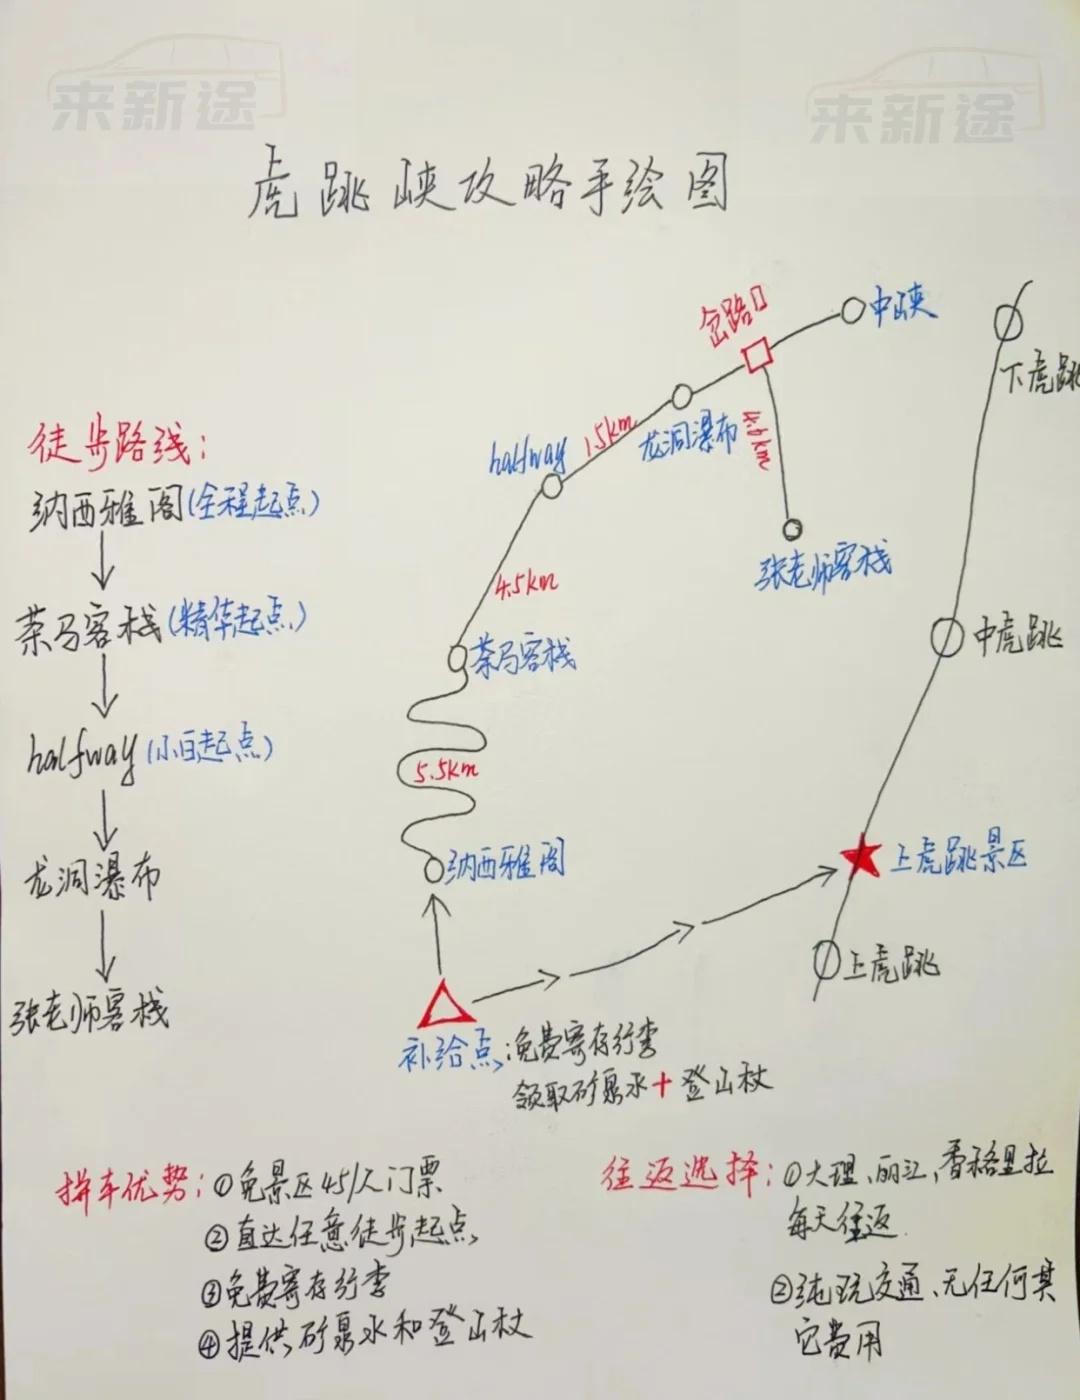 来新途
来新途
虎跳峡攻略手绘图
岔路口
中峡
下虎跳
徒步路线：
纳西雅阁（全程起点）
茶马客栈（精华起点）
halfway（小白起点）
龙洞瀑布
张老师客栈
halfway
1.5km
龙洞瀑布
张老师客栈
4.5km
茶马客栈
中虎跳
5.5km
纳西雅阁
上虎跳景区
上虎跳
补给点：免费寄存行李
领取矿泉水+登山杖
拼车优势：①免景区45/人门票
②直达任意徒步起点
③免费寄存行李
④提供矿泉水和登山杖
往返选择：①大理、丽江，香格里拉
每天往返.
②纯玩交通、无任何其
它费用